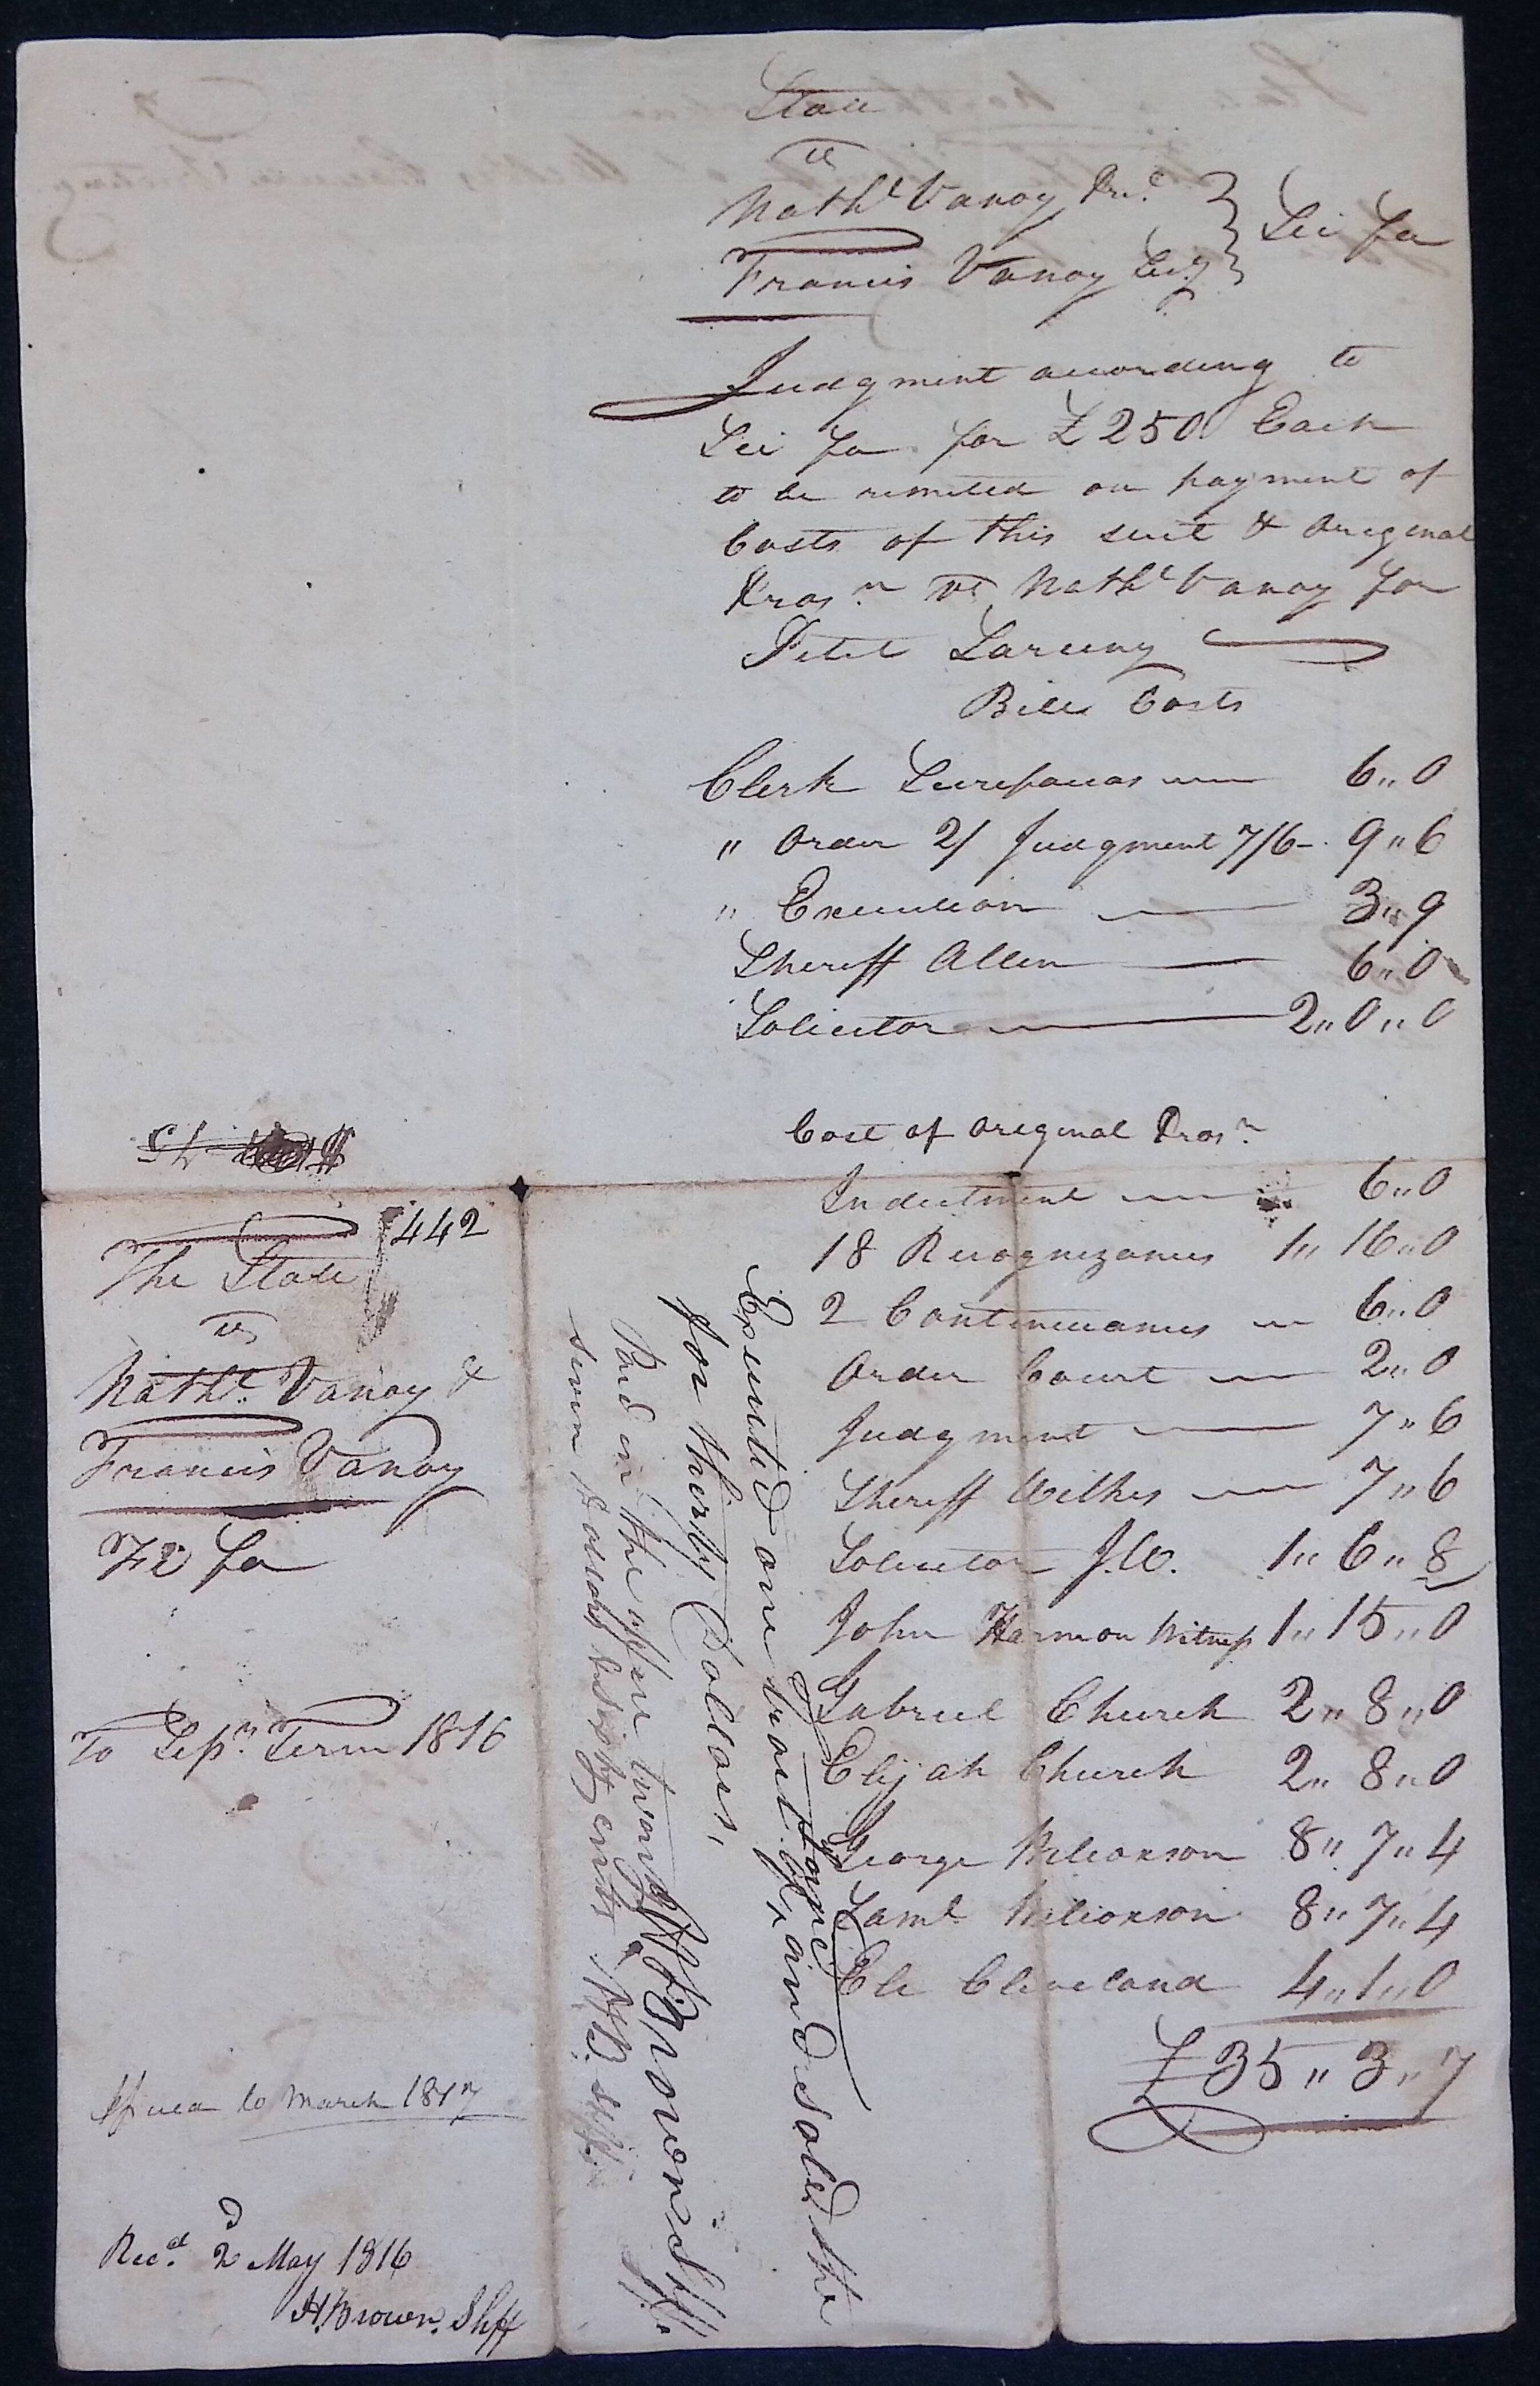 State
vs
Nathl Vanoy Prc
Francis Vanoy Sec.y } Sci fa
Judgment according to
Sci fa for £250 Each
to be remited on payment of
Costs of this suit & Original
Prosn vs Nathl Vanoy for
Petit Larceny
Bill Costs
Clerk Scirefacias 6,,0
" Order 2/ Judgment 7/6 - 9,,6
" Execution 3,,9
Sheriff Allen 6,,0
Solicitor 2,,0,,0
Cost of Original Prosn
Indictment 6,,0
18 Recognizances 1,,16,,0
2 Continuances 6,,0
Order Court 2,,0
Judgment 7,,6
Sheriff Wilkes 7,,6
Solicitor J.W. 1,,6,,8
John Harmon Witness 1,,15,,0
Gabriel Church 2,,8,,0
Elijah Church 2,,8,,0
George Wilcoxson 8,,7,,4
Saml Wilcoxson 8,,7,,4
Eli Cleveland 4,,1,,0
£35,,3,,7
Executed on one and sold the
same
for thirty Dollars,
H Brown Shff.
Paid in the office twenty
seven Dollars & sixty cents H B. Shff.
442
The State
vs
Nathl. Vanoy &
Francis Vanoy
Fi fa
To Sepr. Term 1816
Issued to March 1817
Recd. 2d May 1816
H. Brown. Shff